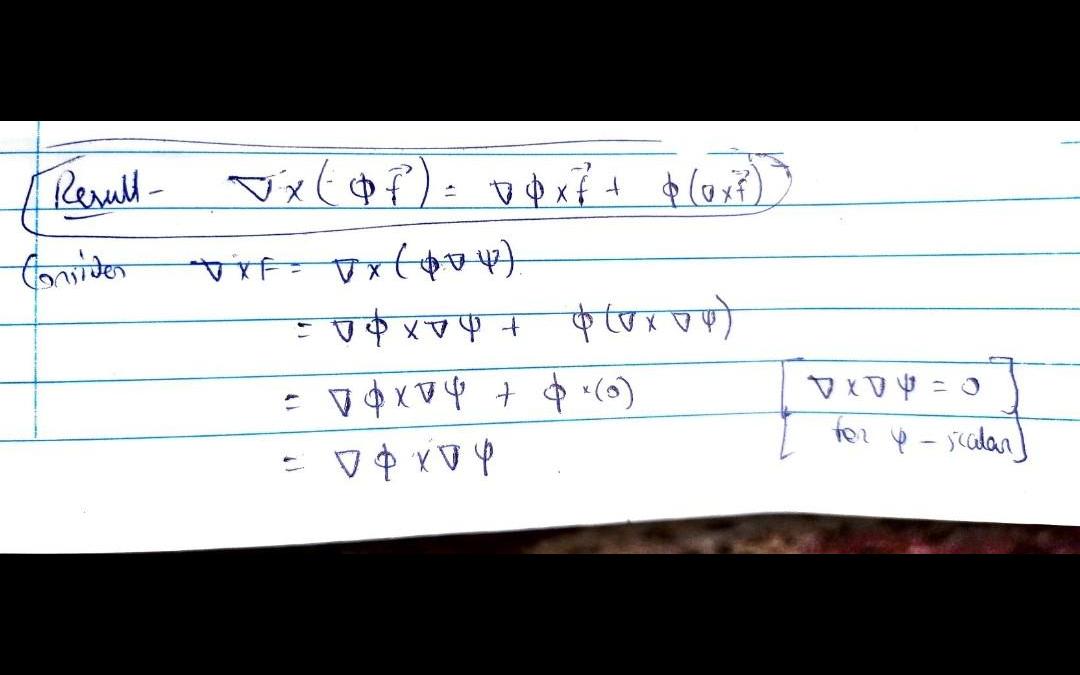 Result - ∇×(φf⃗) = ∇φ×f⃗ + φ(∇×f⃗)
Consider ∇×F = ∇×(φ∇ψ)
= ∇φ×∇ψ + φ(∇×∇ψ)
= ∇φ×∇ψ + φ×(0) [∇×∇ψ = 0
= ∇φ×∇ψ for ψ - scalar]